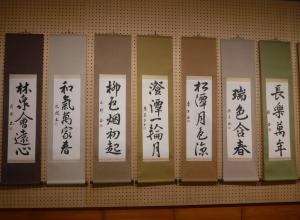 長樂萬年
瑞色含春
松潭月色涼
澄潭一輪月
柳色烟初起
和氣萬家春
林泉會遠心